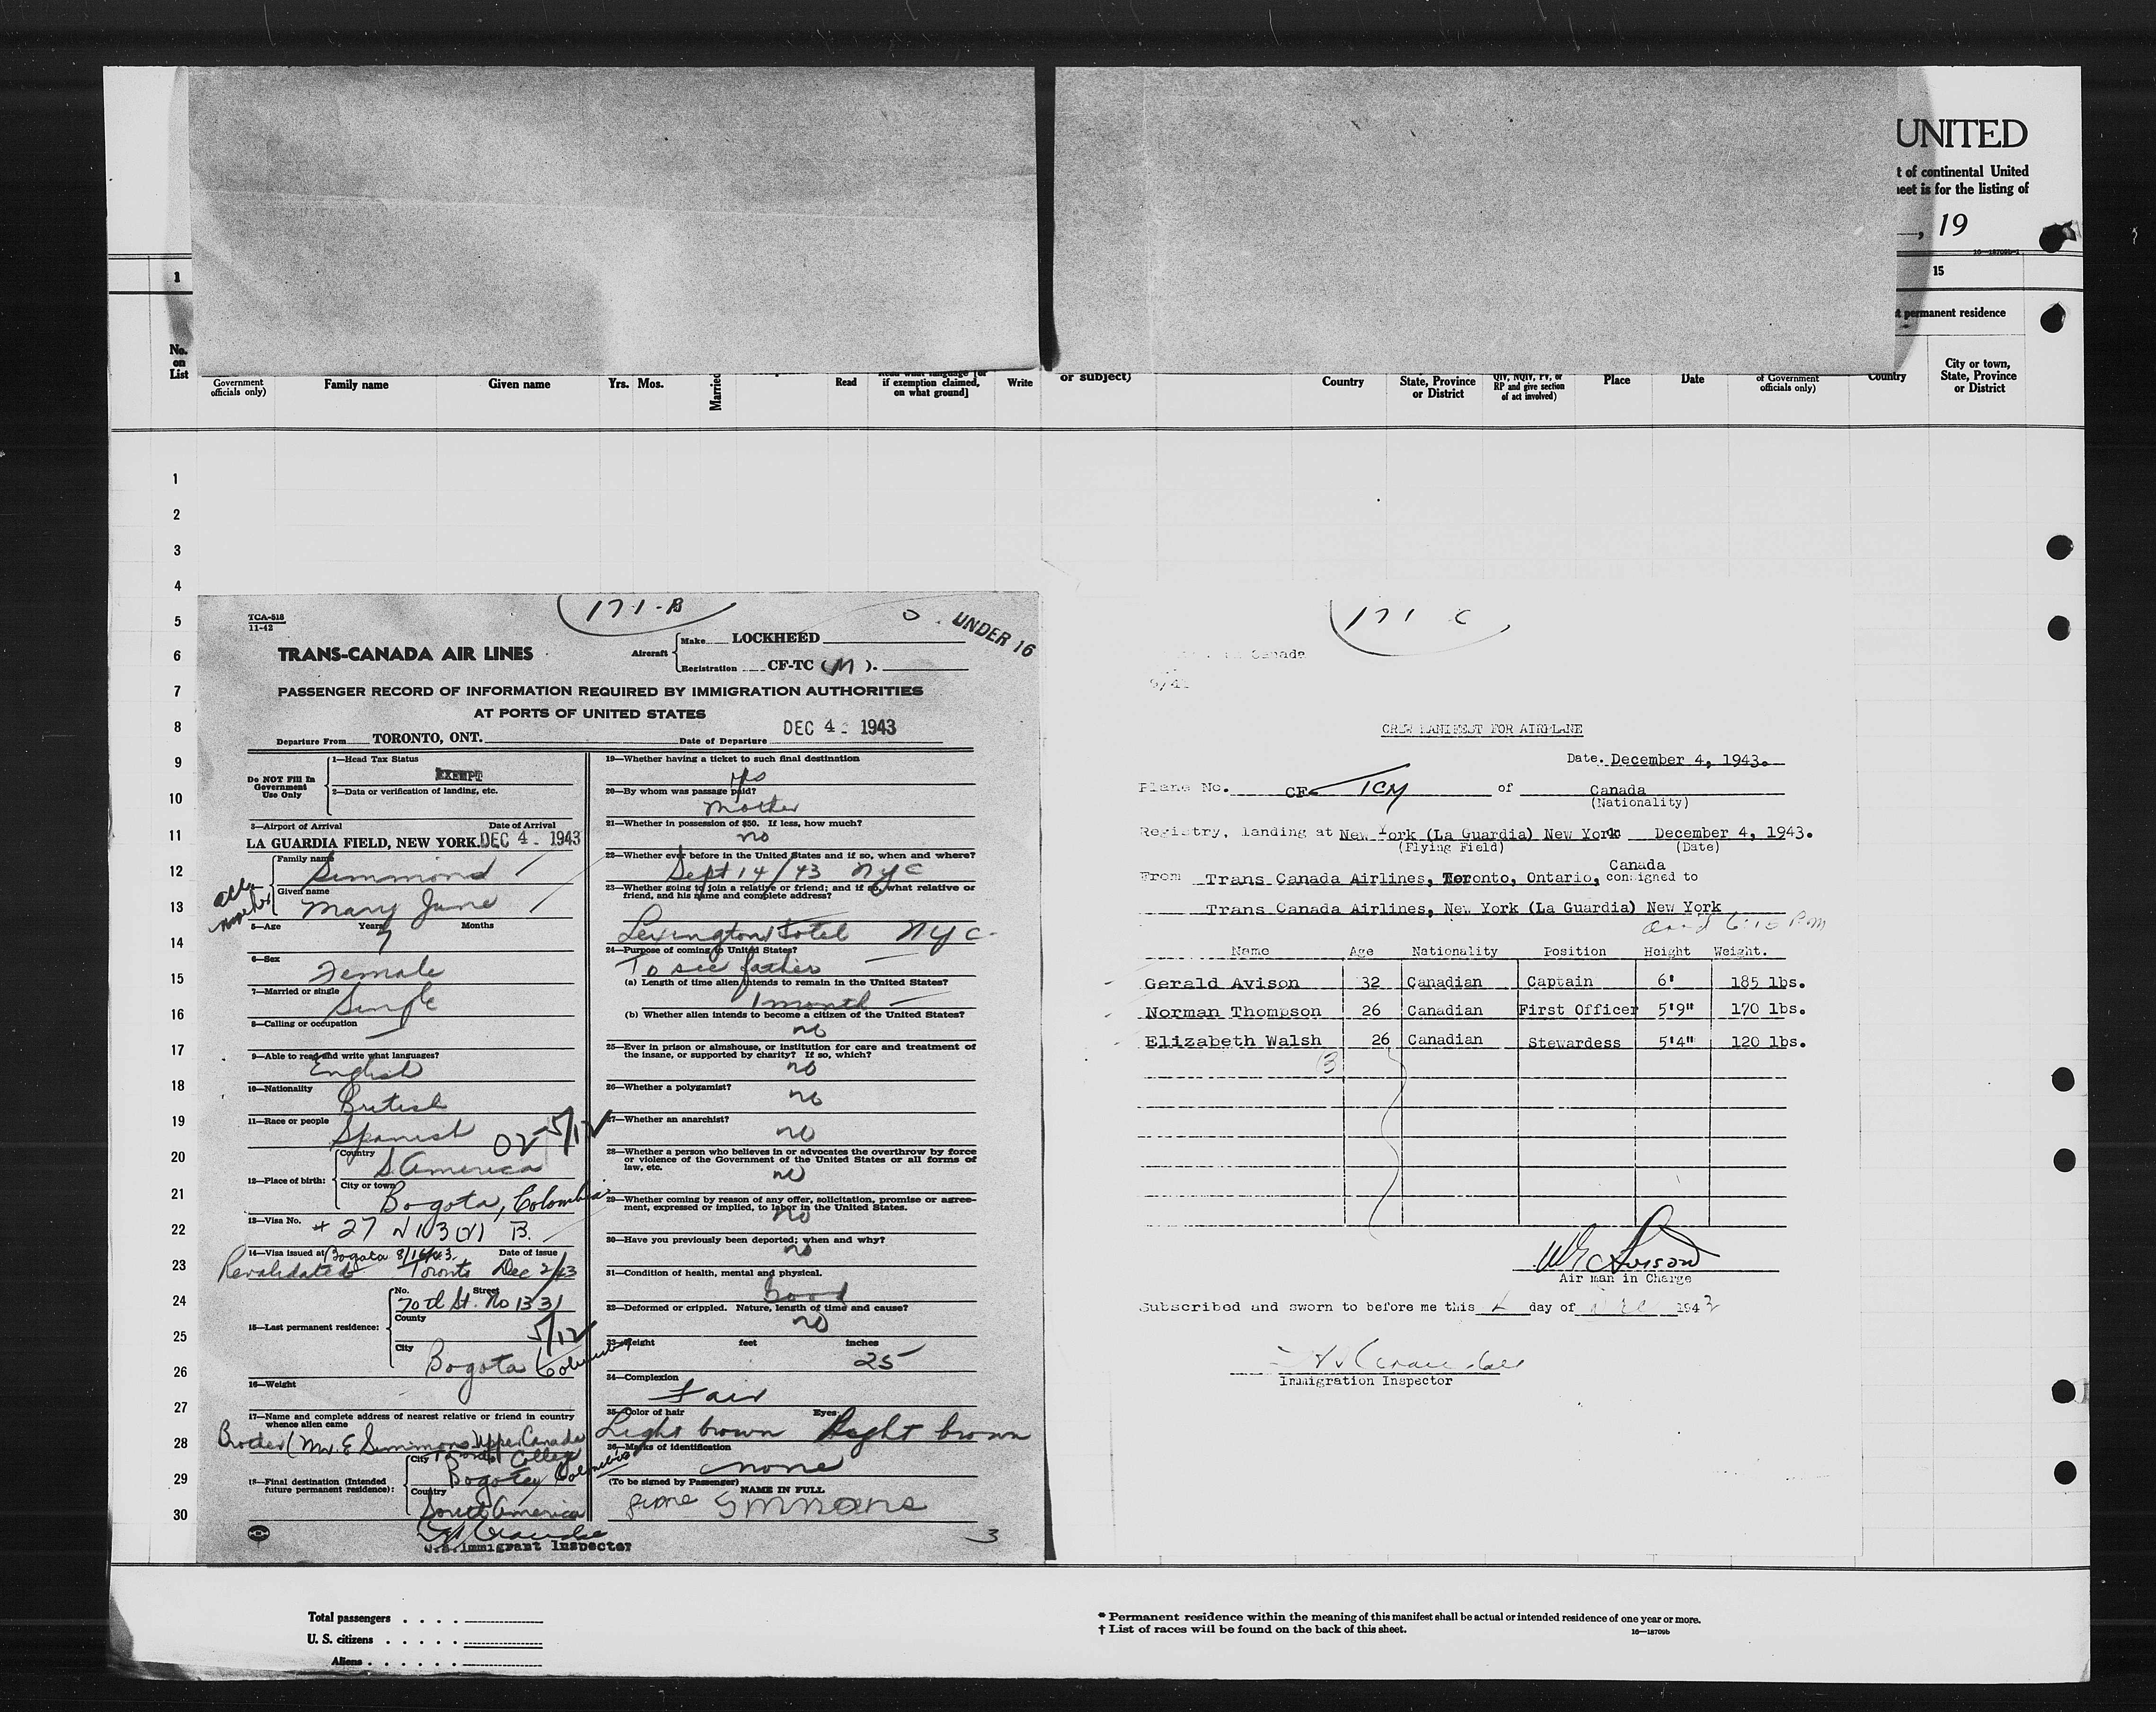 UNITED
t of continental United
eet is for the listing of
, 19
16—18709b-1
1
15
permanent residence
No.
on
List
Government
officials only)
Family name
Given name
Yrs.
Mos.
Married
Read
if exemption claimed,
on what ground]
Write
or subject)
Country
State, Province
or District
QIV, NQIV, PV, or
RP and give section
of act involved)
Place
Date
of Government
officials only)
Country
City or town,
State, Province
or District
1
2
3
4
5
6
7
8
9
10
11
12
13
14
15
16
17
18
19
20
21
22
23
24
25
26
27
28
29
30
171-B
TCA-518
11-42
UNDER 16
TRANS-CANADA AIR LINES
Aircraft
Make LOCKHEED
Registration CF-TC (M).
PASSENGER RECORD OF INFORMATION REQUIRED BY IMMIGRATION AUTHORITIES
AT PORTS OF UNITED STATES
Departure From TORONTO, ONT.
Date of Departure DEC 4 - 1943
Do NOT Fill In
Government
Use Only
1—Head Tax Status
EXEMPT
2—Data or verification of landing, etc.
3—Airport of Arrival
Date of Arrival
LA GUARDIA FIELD, NEW YORK. DEC 4 - 1943
Family name
Simmond
Given name
Mary June
5—Age Years Months
7
6—Sex
Female
7—Married or single
Single
8—Calling or occupation
9—Able to read and write what languages?
English
10—Nationality
British
11—Race or people
Spanish
02 5/12
12—Place of birth:
Country
S America
City or town
Bogota, Colombia
13—Visa No.
# 27 B.
14—Visa issued at Bogota 8/16/43
Date of issue
Revalidated Toronto Dec 2/43
15—Last permanent residence:
No. Street
70th St. No 1331
County
5/12
City
Bogota Colombia
16—Weight
17—Name and complete address of nearest relative or friend in country
whence alien came
Brother (Mr. E Simmons Upper Canada
College
18—Final destination (Intended
future permanent residence):
City
Bogota Colombia
Country
South America
U.S. Immigrant Inspector
19—Whether having a ticket to such final destination
yes
20—By whom was passage paid?
Mother
21—Whether in possession of $50. If less, how much?
no
22—Whether ever before in the United States and if so, when and where?
Sept 14/43 NYC
23—Whether going to join a relative or friend; and if so, what relative or
friend, and his name and complete address?
Lexington Hotel NYC.
24—Purpose of coming to United States?
To see father
(a) Length of time alien intends to remain in the United States?
1 month
(b) Whether alien intends to become a citizen of the United States?
no
25—Ever in prison or almshouse, or institution for care and treatment of
the insane, or supported by charity? If so, which?
no
26—Whether a polygamist?
no
27—Whether an anarchist?
no
28—Whether a person who believes in or advocates the overthrow by force
or violence of the Government of the United States or all forms of
law, etc.
no
29—Whether coming by reason of any offer, solicitation, promise or agree-
ment, expressed or implied, to labor in the United States.
no
30—Have you previously been deported; when and why?
no
31—Condition of health, mental and physical.
Good
32—Deformed or crippled. Nature, length of time and cause?
no
33—Height feet inches
25
34—Complexion
Fair
35—Color of hair Eyes
Light brown Light brown
36—Marks of identification
none
(To be signed by Passenger)
NAME IN FULL
June Simmons
3
171 C
Canada
CREW MANIFEST FOR AIRPLANE
Date. December 4, 1943.
Plane No. CF- TCM of Canada
(Nationality)
Registry, landing at New York (La Guardia) New York December 4, 1943.
(Flying Field) (Date)
From Trans Canada Airlines, Toronto, Ontario, Canada consigned to
Trans Canada Airlines, New York (La Guardia) New York
Name Age Nationality Position Height Weight.
Gerald Avison 32 Canadian Captain 6' 185 lbs.
Norman Thompson 26 Canadian First Officer 5'9" 170 lbs.
Elizabeth Walsh 26 Canadian Stewardess 5'4" 120 lbs.
3
Air man in Charge
Subscribed and sworn to before me this 4 day of Dec 1943
Immigration Inspector
Total passengers . . . .
U. S. citizens . . . . .
Aliens . . . . . .
* Permanent residence within the meaning of this manifest shall be actual or intended residence of one year or more.
† List of races will be found on the back of this sheet.
16—18709b